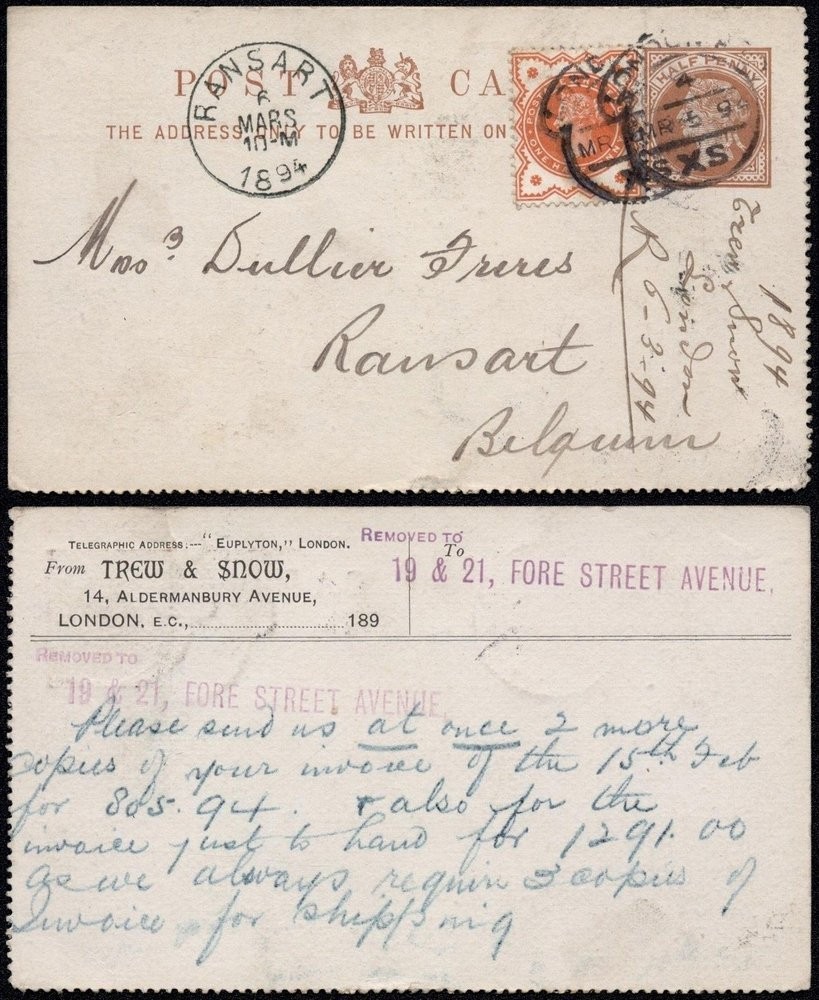 POST CA
THE ADDRESS ONLY TO BE WRITTEN ON
RANSART
6
MARS
10-M
1894
HALF PENNY
MR 5 94
XS
MR
Mss^rs Dullier Freres
Ransart
Belgium
1894
Trew & Snow
London
R 6-3-94
TELEGRAPHIC ADDRESS:—"EUPLYTON," LONDON.
From TREW & SNOW,
14, ALDERMANBURY AVENUE,
LONDON, E.C., 189
To
REMOVED TO
19 & 21, FORE STREET AVENUE,
REMOVED TO
19 & 21, FORE STREET AVENUE,
Please send us at once 2 more
copies of your invoice of the 15th Feb
for 805.94. & also for the
invoice just to hand for 1291.00
as we always require 3 copies of
Invoice for shipping